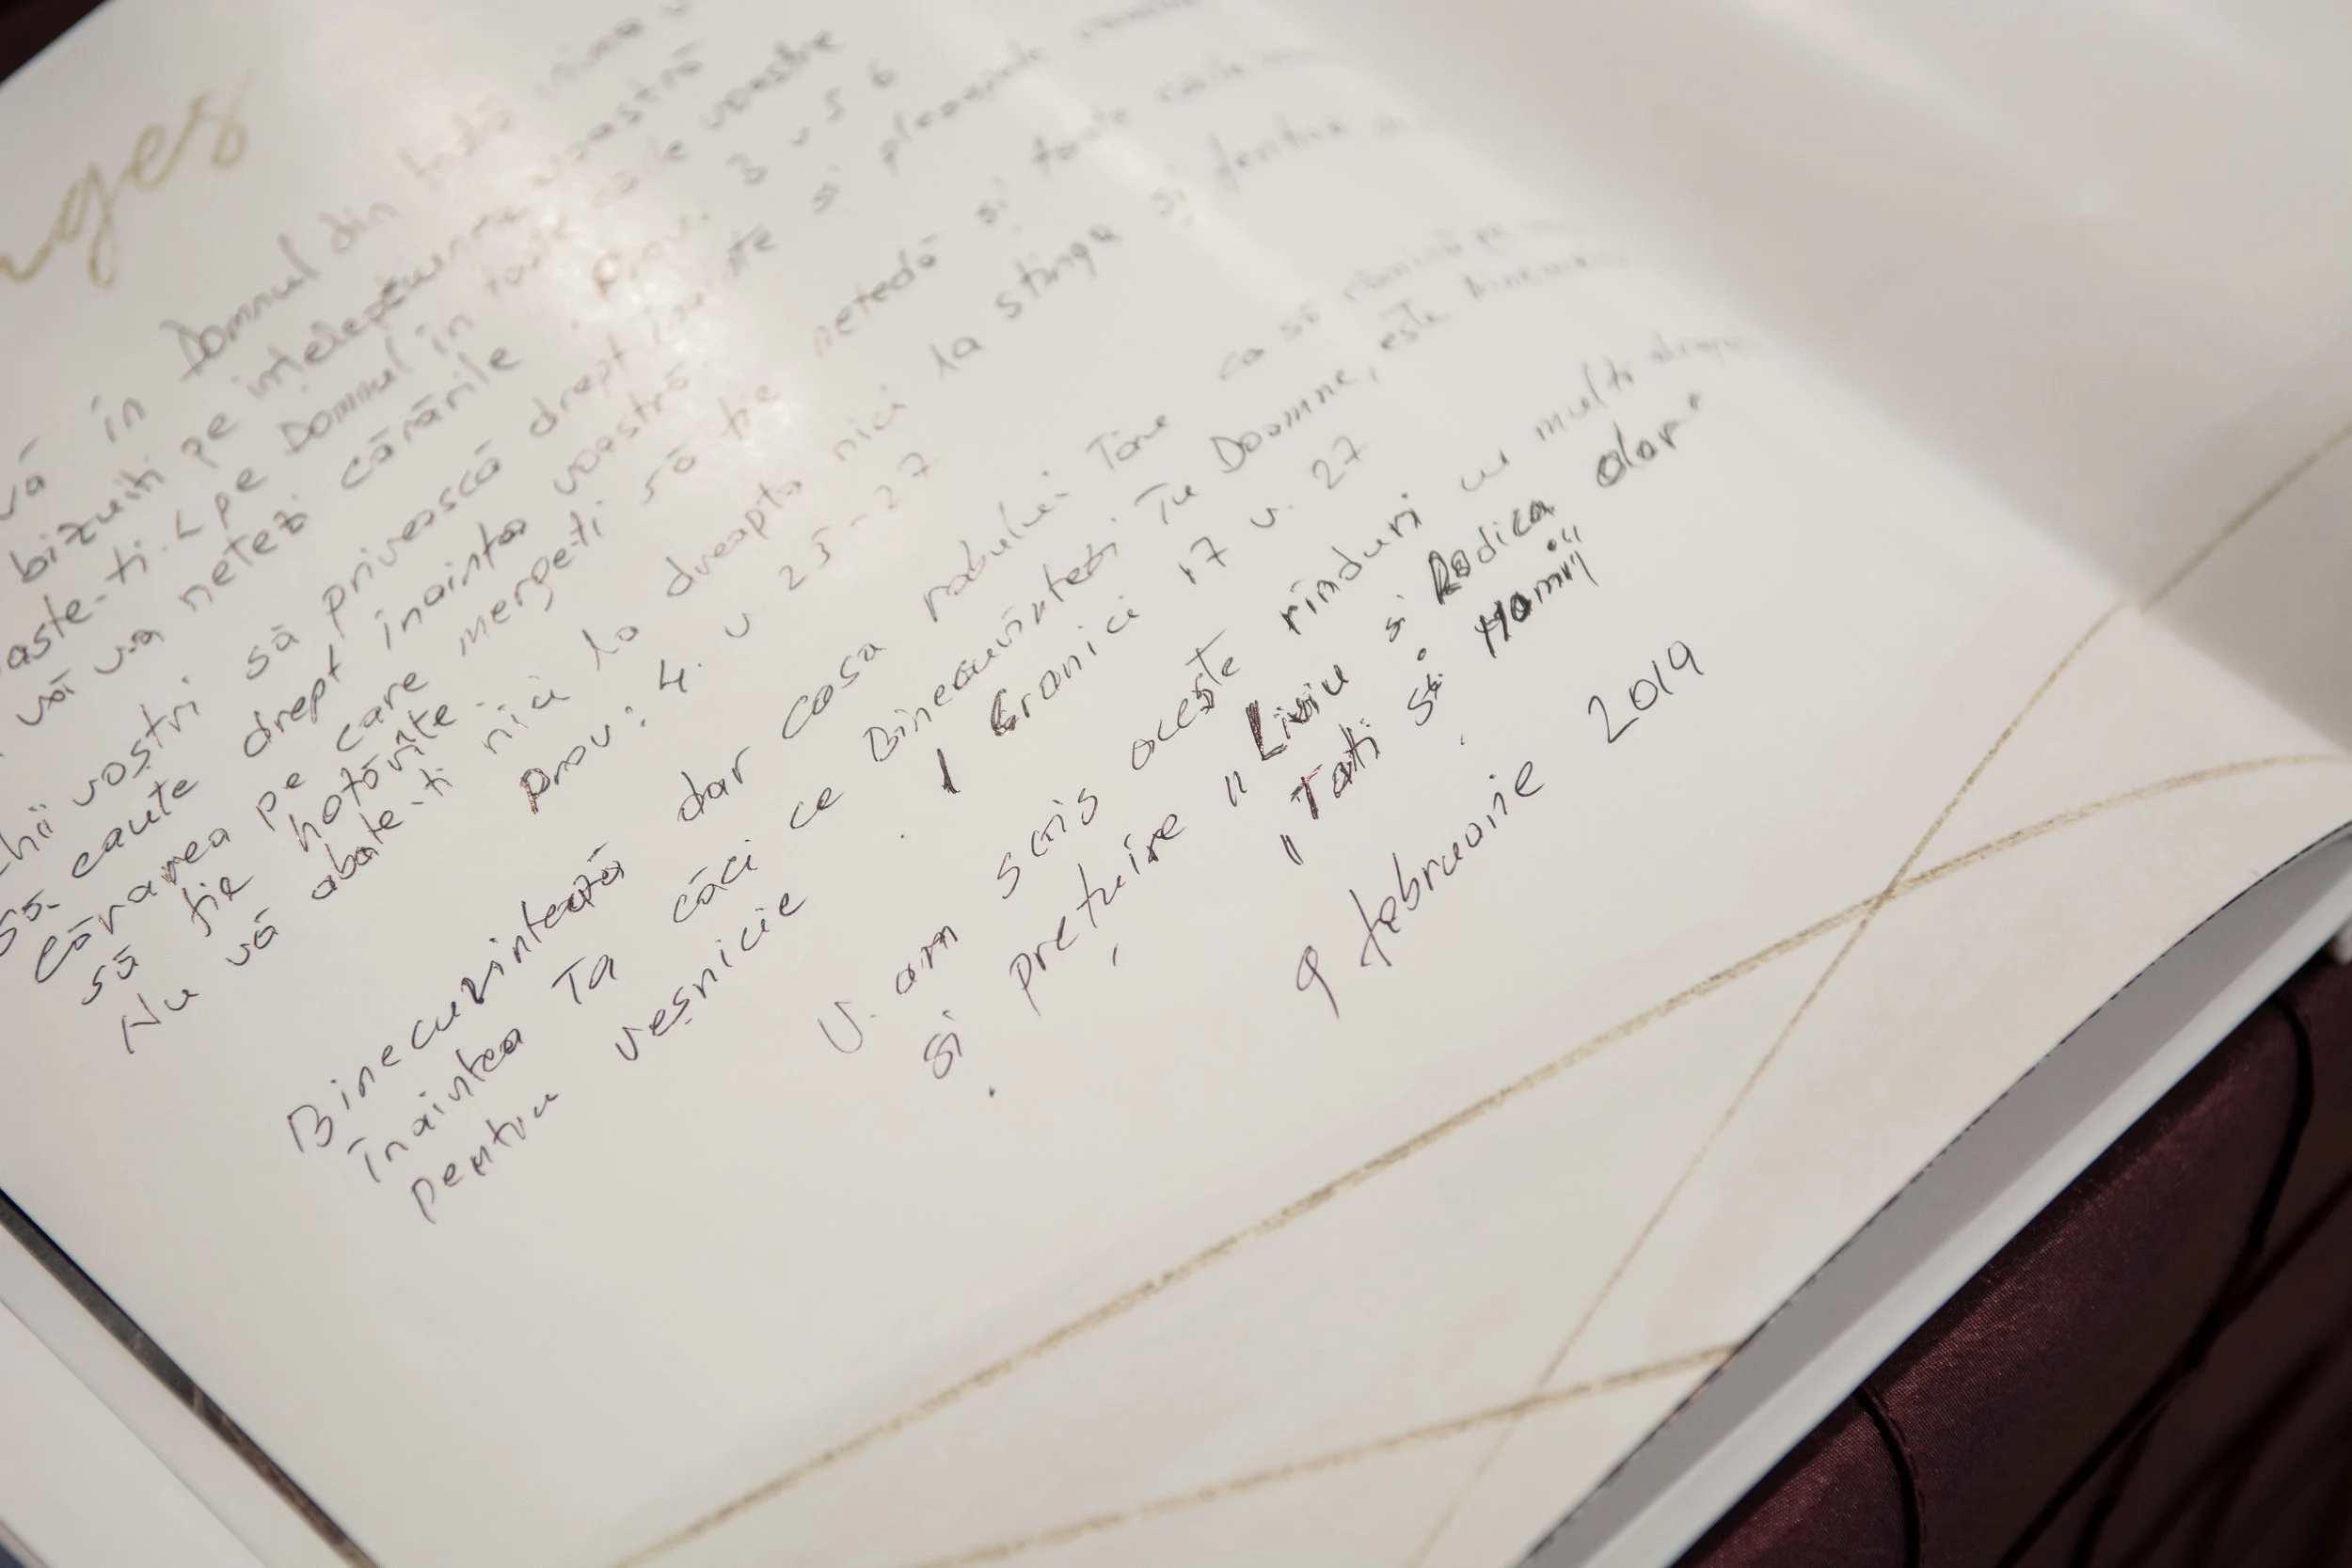 nges
vă în Domnul din toată inima
bizuiti pe intelepciunea voastră
aste-ti-L pe Domnul în toate căile voastre
vă va netezi cărările Prov. 3 v 5 6
chii vostri să privească drept inainte si pleoapele
să caute drept înainta voastră.
cărarea pe care mergeti să fie netedă si toate căile
să fie hotărîte.
Nu vă abate-ti nici la dreapta nici la stinga si feriti-vă
Prov: 4. v. 25-27
Binecuvintează dar casa robului Tău ca să rămînă pe
Înaintea Ta căci ce Binecuvintezi Tu Doamne, este binecuvintat
pentru veșnicie. 1 Cronici 17 v. 27
V-am scris aceste rînduri cu multă drag
si prețuire "Liviu si Rodica Olar"
"Tati si Mami"
9 februarie 2019